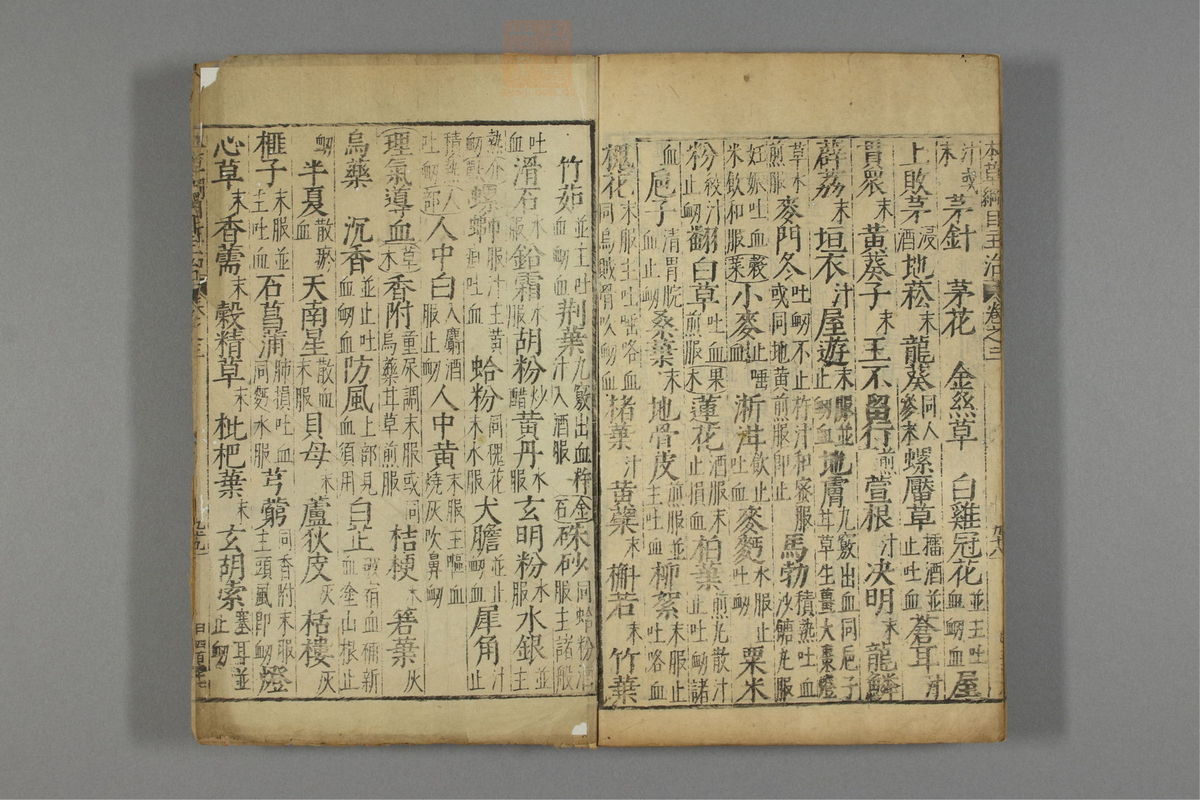 本草綱目主治 卷之三 九十八
汁或末 茅針 茅花 金絲草 白雞冠花並主吐血衄血 屋
上敗茅浸酒 地菘末 龍葵同人參末 螺厴草擂酒並止吐血 蒼耳汁
貫衆末 黃葵子末 王不留行煎 萱根汁 決明 龍鱗
薜荔末 垣衣汁 屋遊末服並止衄血 地膚九竅出血同巵子甘草生薑大棗燈
草水煎服 麥門冬吐衄不止杵汁和蜜服或同地黃煎服即止 馬勃積熱吐血沙糖丸服
妊娠吐血米飲和服 穀菜 小麥止唾血 淅泔飲止吐血 麥麪水服止吐衄 粟米
粉絞汁止衄 翻白草吐血煎服 蓮花酒服末止損血 柏葉煎丸散汁止吐衄諸
血 巵子清胃脘血止衄 桑葉末 地骨皮煎服並主吐血 柳絮末服止吐咯血
槐花末服主吐唾咯血同烏賊骨吹衄血 楮葉汁 黃蘗末 槲若末 竹葉
竹茹並主吐血衄血 荆葉九竅出血杵汁入酒服 金石 硃砂同蛤粉酒服主諸般
吐血 滑石水服 鉛霜水服 胡粉炒醋服 黃丹水服 玄明粉水服 水銀並主
衄 螺 蛤粉同槐花末水服 犬膽並止衄血 犀角汁止
積熱吐衄 人部 人中白入麝酒服止衄 人中黃末服主嘔血燒灰吹鼻衄
理氣導血 草木 香附童尿調末服或同烏藥甘草煎服 桔梗末 箬葉灰
烏藥 沉香並止吐血衄血 防風上部見血須用 白芷破宿血補新血塗山根止
衄 半夏散瘀血 天南星散血末服 貝母末 蘆荻皮灰 栝樓灰
榧子末服並主吐血 石菖蒲肺損吐血同麪水服 芎藭同香附末服主頭風即衄 燈
心草末 香薷末 穀精草末 枇杷葉末 玄胡索塞耳並止衄